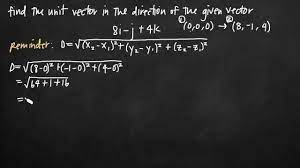 find the unit vector in the direction of the given vector
8i - j + 4k (0,0,0) → (8, -1, 4)
Reminder: D = √(x₂ - x₁)² + (y₂ - y₁)² + (z₂ - z₁)²
D = √(8-0)² + (-1-0)² + (4-0)²
= √64 + 1 + 16
=